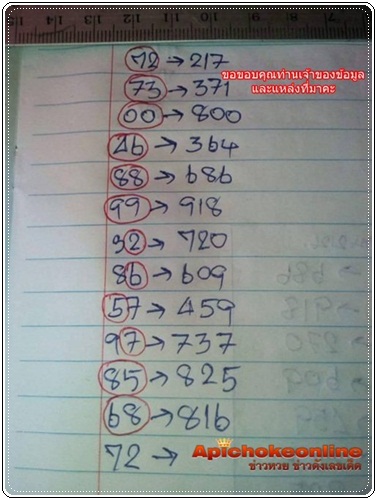 14 13 12 11 10 9
72 → 217
ขอขอบคุณท่านเจ้าของข้อมูล
และแหล่งที่มาคะ
73 → 371
00 → 800
46 → 364
88 → 686
99 → 918
92 → 720
86 → 609
57 → 459
97 → 737
85 → 825
68 → 816
72 →
Apichokeonline
ข่าวหวย ข่าวดังเลขเด็ด